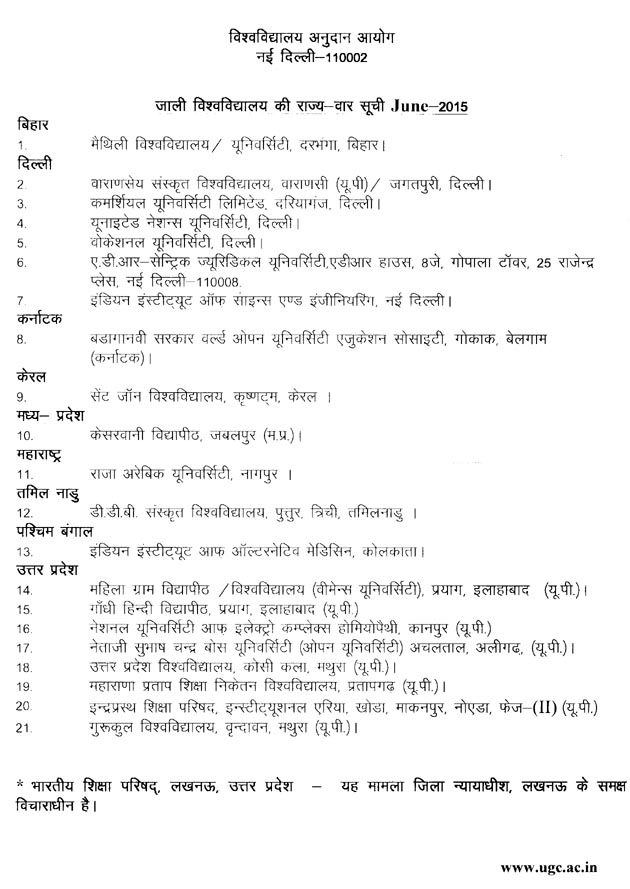 विश्वविद्यालय अनुदान आयोग
नई दिल्ली–110002
जाली विश्वविद्यालय की राज्य–वार सूची June–2015
बिहार
1. मैथिली विश्वविद्यालय/ यूनिवर्सिटी, दरभंगा, बिहार।
दिल्ली
2. वाराणसेय संस्कृत विश्वविद्यालय, वाराणसी (यू.पी)/ जगतपुरी, दिल्ली।
3. कमर्शियल यूनिवर्सिटी लिमिटेड, दरियागंज, दिल्ली।
4. यूनाइटेड नेशन्स यूनिवर्सिटी, दिल्ली।
5. वोकेशनल यूनिवर्सिटी, दिल्ली।
6. ए.डी.आर–सेन्ट्रिक ज्यूरिडिकल यूनिवर्सिटी,एडीआर हाउस, 8जे, गोपाला टॉवर, 25 राजेन्द्र
प्लेस, नई दिल्ली–110008.
7. इंडियन इंस्टीट्यूट ऑफ साइन्स एण्ड इंजीनियरिंग, नई दिल्ली।
कर्नाटक
8. बडागानवी सरकार वर्ल्ड ओपन यूनिवर्सिटी एजुकेशन सोसाइटी, गोकाक, बेलगाम
(कर्नाटक)।
केरल
9. सेंट जॉन विश्वविद्यालय, कृष्णट्म, केरल ।
मध्य– प्रदेश
10. केसरवानी विद्यापीठ, जबलपुर (म.प्र.)।
महाराष्ट्र
11. राजा अरेबिक यूनिवर्सिटी, नागपुर ।
तमिल नाडु
12. डी.डी.बी. संस्कृत विश्वविद्यालय, पुत्तुर, त्रिची, तमिलनाडु ।
पश्चिम बंगाल
13. इंडियन इंस्टीट्यूट आफ ऑल्टरनेटिव मेडिसिन, कोलकाता।
उत्तर प्रदेश
14. महिला ग्राम विद्यापीठ /विश्वविद्यालय (वीमेन्स यूनिवर्सिटी), प्रयाग, इलाहाबाद (यू.पी.)।
15. गाँधी हिन्दी विद्यापीठ, प्रयाग, इलाहाबाद (यू.पी.)
16. नेशनल यूनिवर्सिटी आफ इलेक्ट्रो कम्प्लेक्स होमियोपैथी, कानपुर (यू.पी.)
17. नेताजी सुभाष चन्द्र बोस यूनिवर्सिटी (ओपन यूनिवर्सिटी) अचलताल, अलीगढ़, (यू.पी.)।
18. उत्तर प्रदेश विश्वविद्यालय, कोसी कला, मथुरा (यू.पी.)।
19. महाराणा प्रताप शिक्षा निकेतन विश्वविद्यालय, प्रतापगढ (यू.पी.)।
20. इन्द्रप्रस्थ शिक्षा परिषद, इन्स्टीट्यूशनल एरिया, खोडा, माकनपुर, नोएडा, फेज–(II) (यू.पी.)
21. गुरूकुल विश्वविद्यालय, वृन्दावन, मथुरा (यू.पी.)।
* भारतीय शिक्षा परिषद्, लखनऊ, उत्तर प्रदेश – यह मामला जिला न्यायाधीश, लखनऊ के समक्ष
विचाराधीन है।
www.ugc.ac.in